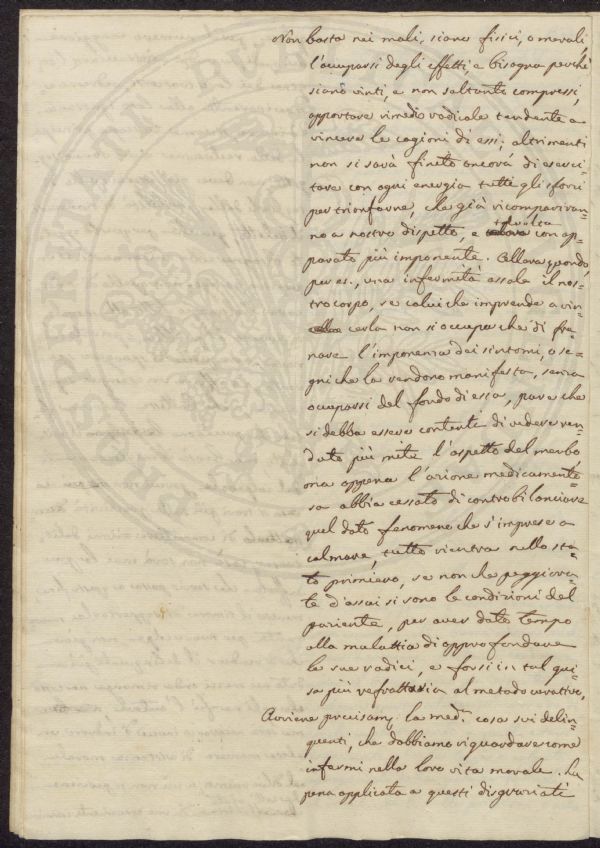 Non basta nei mali, siano fisici, o morali,
l'occuparsi degli effetti, e bisogna perchè
siano vinti, e non soltanto compressi,
apportare rimedio radicale tendente a
vincere le cagioni di essi; altrimenti
non si sarà finito ancora di eserci=
tare con ogni energia tutti gli sforzi
per trionfarne, che già ricompariran=
no a nostro dispetto, e talvolta con ap=
parato più imponente. Allora quando,
per es., una infermità assale il nos=
tro corpo, se colui che imprende a vin=
cerla non si occupa che di fre=
nare l'imponenza dei sintomi, o se=
gni che la rendono manifesta, senza
occuparsi del fondo di essa, pare che
si debba essere contenti di vedere ren=
dato più mite l'aspetto del morbo
ma appena l'azione medicamento=
sa abbia cessato di controbilanciare
quel dato fenomeno che s'imprese a
calmare, tutto rientra nello sta=
to primiero, se non che peggiora=
te d'assai si sono le condizioni del
paziente, per aver dato tempo
alla malattia di approfondare
le sue radici, e forsi in tal gui=
sa più refrattaria al metodo curativo.
Avviene precisam. la med.ma cosa sui delin=
quenti, che dobbiamo riguardare come
infermi nella loro vita morale. La
pena applicata a questi disgraziati